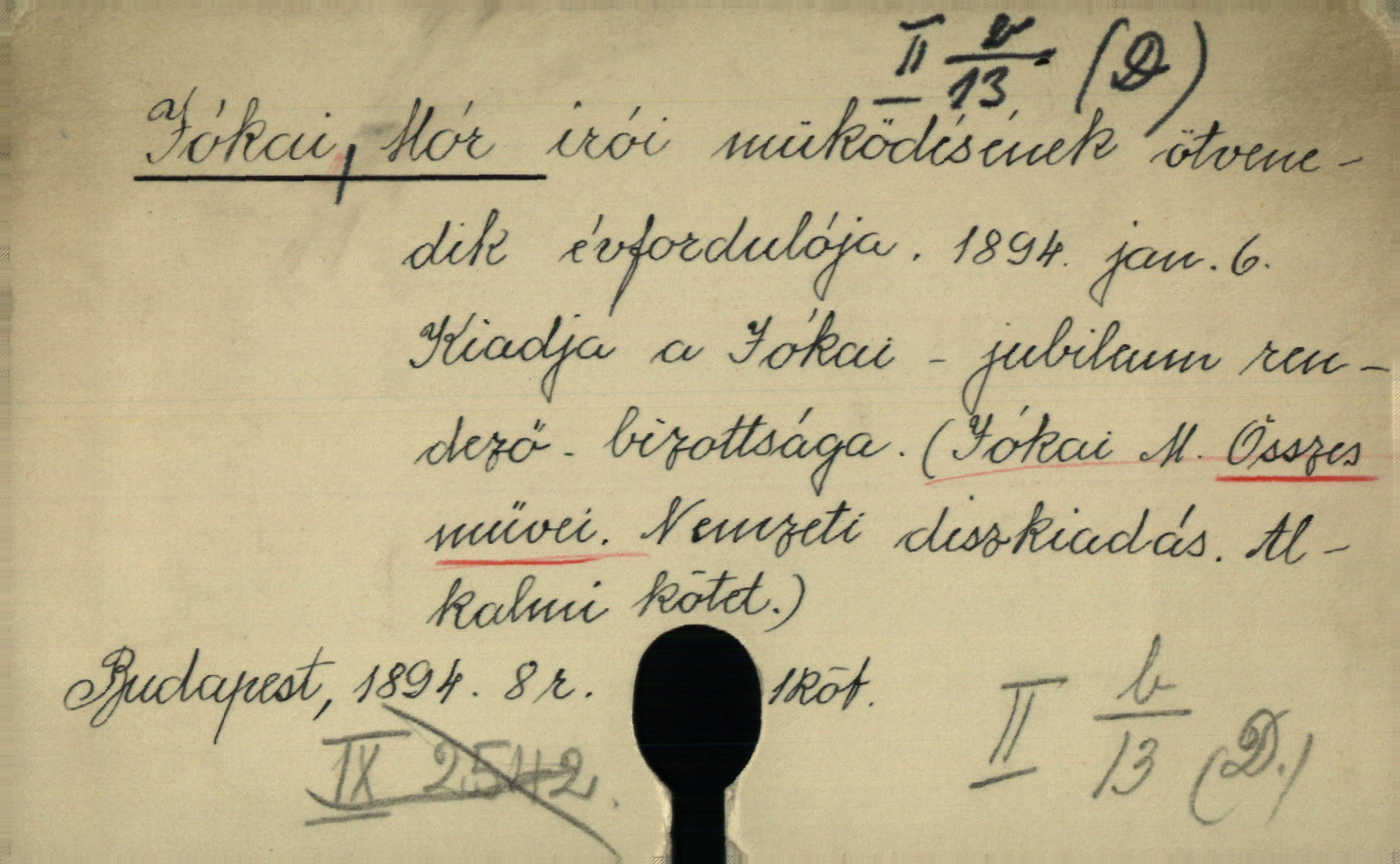 II b/13 (D)
Jókai, Mór irói müködésének ötvene-
dik évfordulója. 1894. jan. 6.
Kiadja a Jókai - jubileum ren-
dező - bizottsága. (Jókai M. Összes
müvei. Nemzeti diszkiadás. Al-
kalmi kötet.)
Budapest, 1894. 8 r. 1 köt.
IX 2542.
II b/13 (D.)